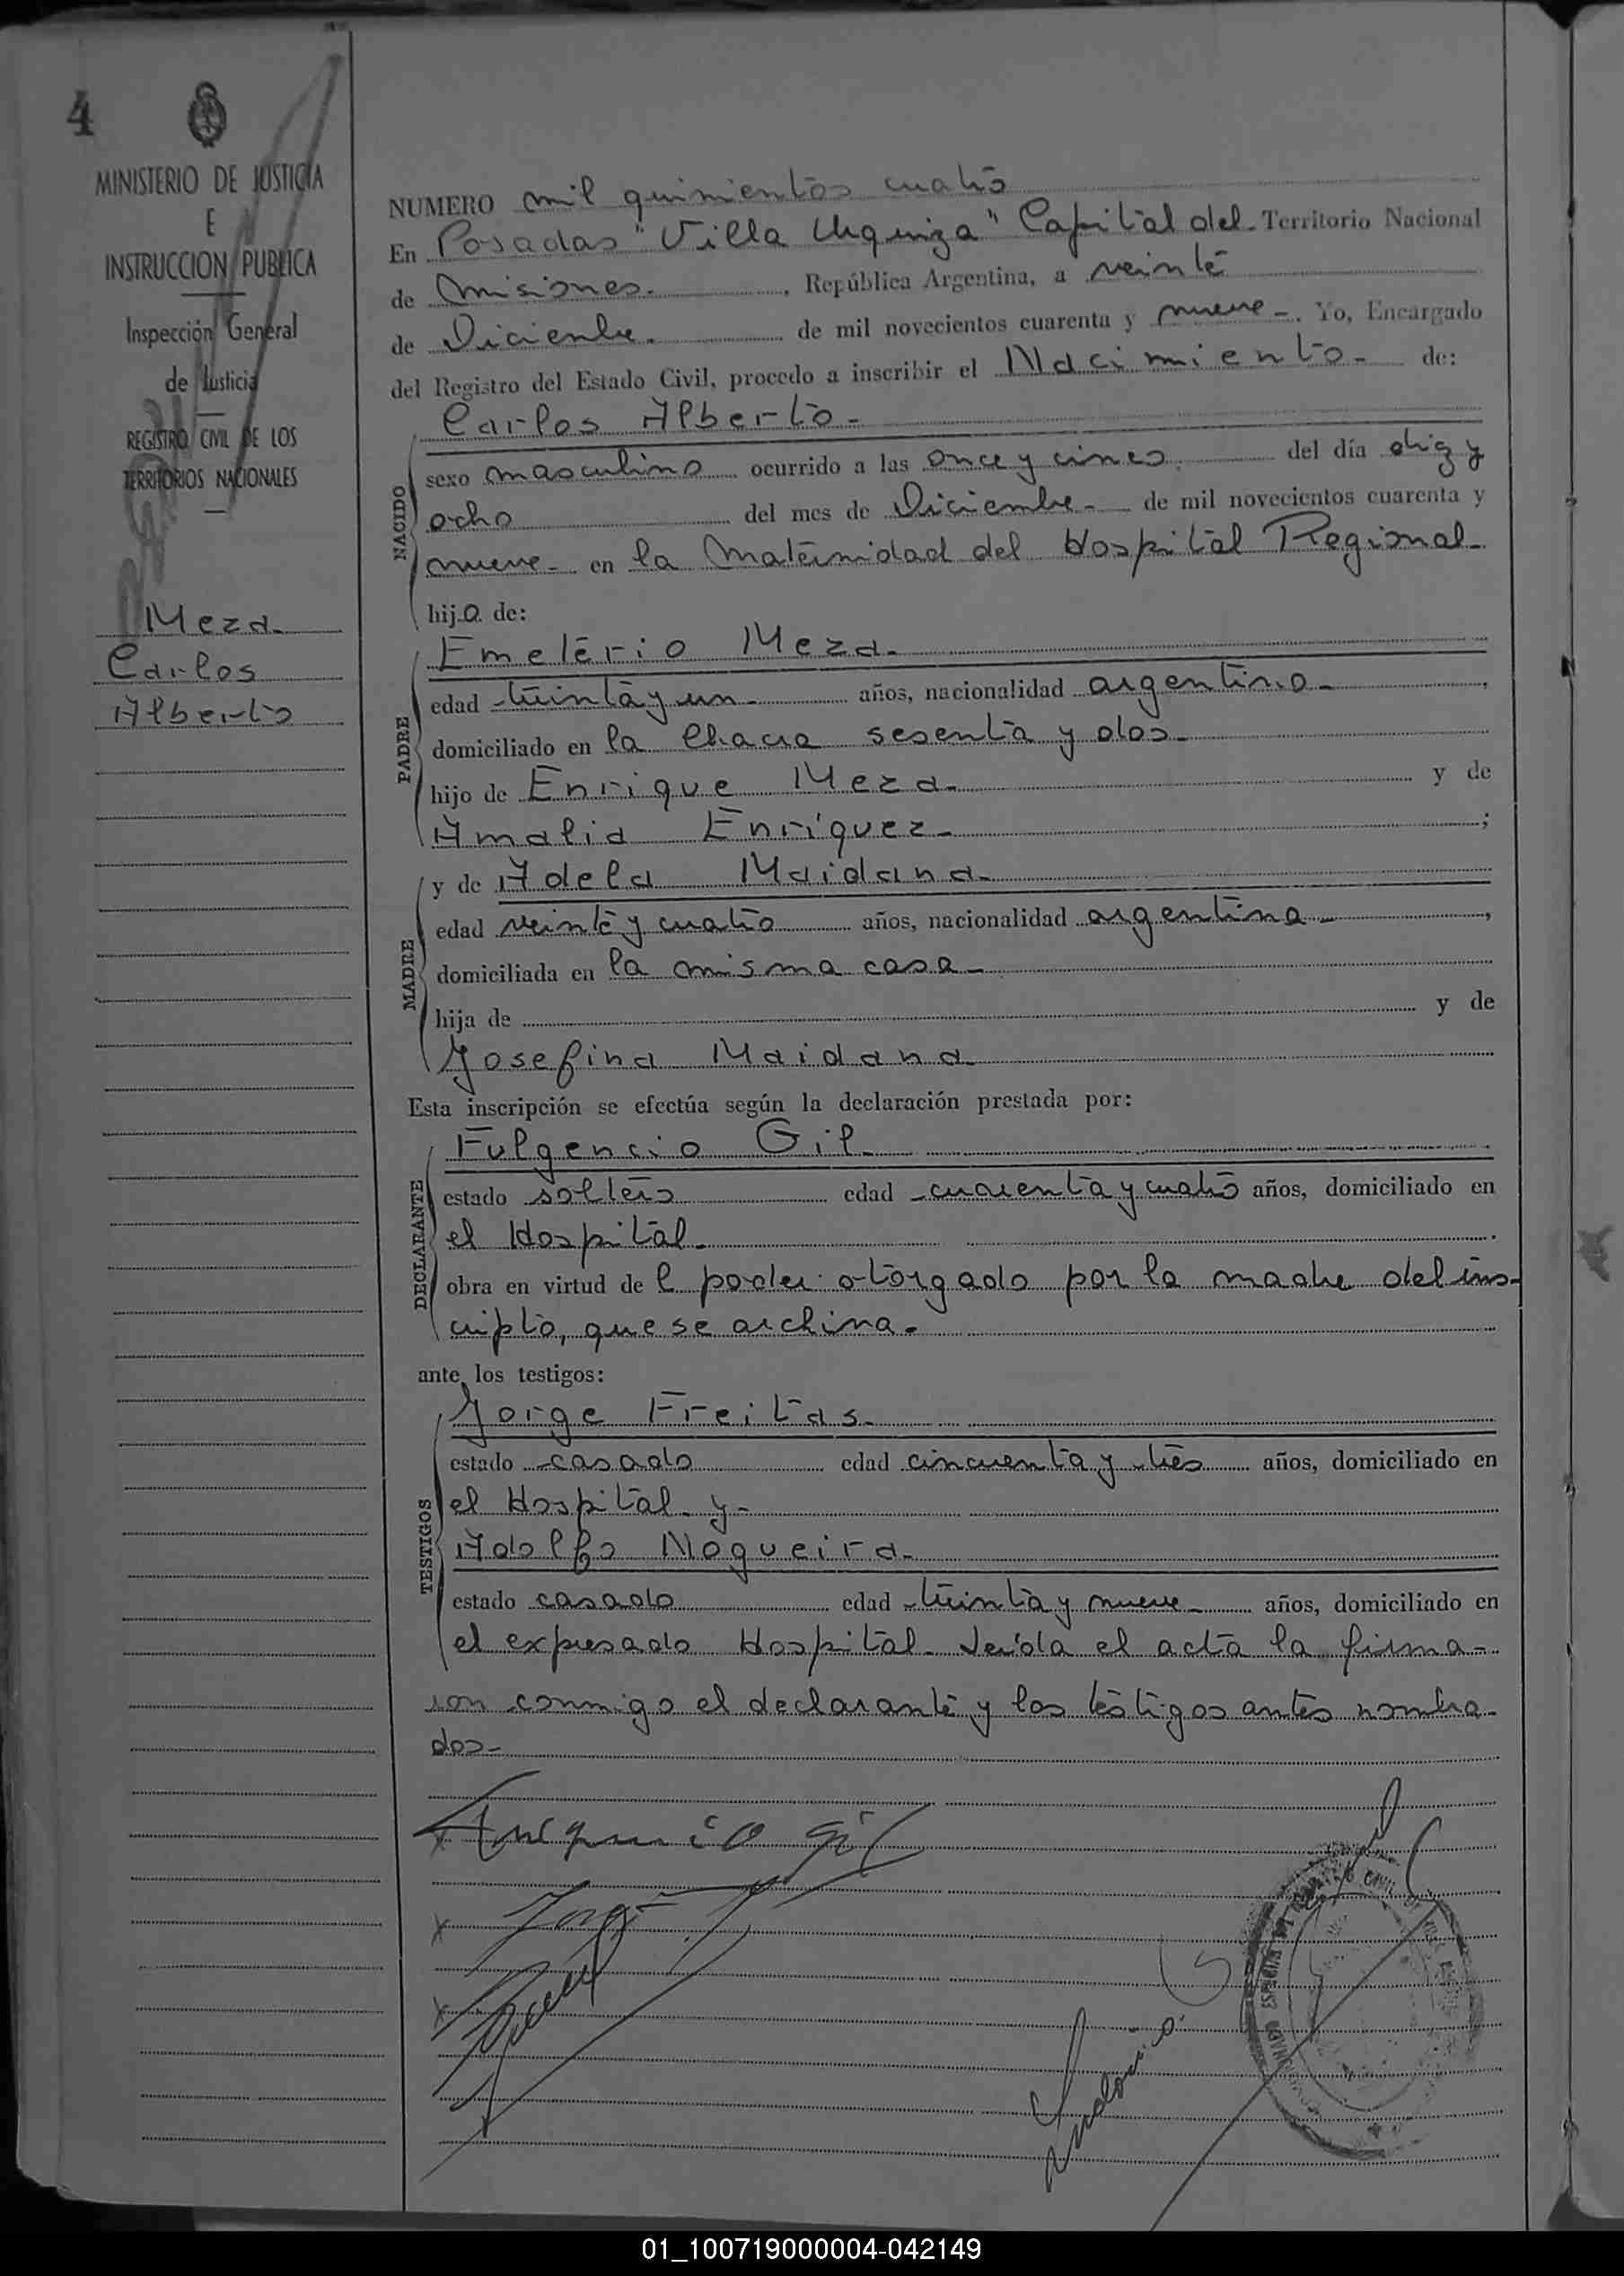 4
MINISTERIO DE JUSTICIA
E
INSTRUCCION PUBLICA
Inspección General
de Justicia
REGISTRO CIVIL DE LOS
TERRITORIOS NACIONALES
Meza
Carlos
Alberto
NUMERO mil quinientos cuatro
En Posadas "Villa Urquiza" Capital del Territorio Nacional
de Misiones. , República Argentina, a veinte
de Diciembre. de mil novecientos cuarenta y nueve-. Yo, Encargado
del Registro del Estado Civil, procedo a inscribir el Nacimiento- de:
NACIDO
Carlos Alberto-
sexo masculino ocurrido a las once y cinco. del día diez y
ocho del mes de Diciembre- de mil novecientos cuarenta y
nueve- en la Maternidad del Hospital Regional-
hijo de:
PADRE
Emeterio Meza-
edad treinta y un- años, nacionalidad argentino- ,
domiciliado en la Chacra sesenta y dos-
hijo de Enrique Meza- y de
Amalia Enríquez- ;
MADRE
y de Adela Maidana-
edad veinte y cuatro años, nacionalidad argentina- ,
domiciliada en la misma casa-
hija de y de
Josefina Maidana-
Esta inscripción se efectúa según la declaración prestada por:
DECLARANTE
Fulgencio Gil-
estado soltero edad cuarenta y cuatro años, domiciliado en
el Hospital- .
obra en virtud de l poder otorgado por la madre del ins-
cripto, que se archiva.
ante los testigos:
TESTIGOS
Jorge Freitas-
estado casado edad cincuenta y tres años, domiciliado en
el Hospital- y-
Adolfo Nogueira-
estado casado edad treinta y nueve- años, domiciliado en
el expresado Hospital- Leída el acta la firma-
ron conmigo el declarante y los testigos antes nombra-
dos-
01_100719000004-042149